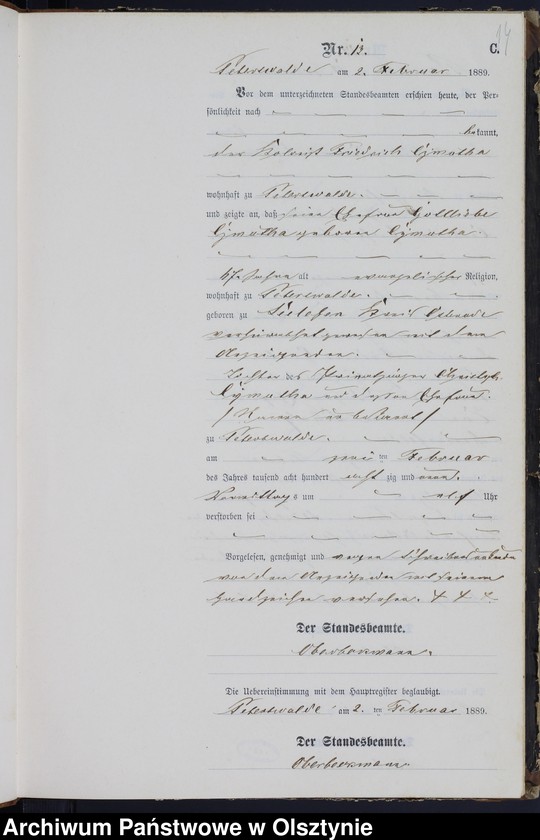 Nr. 13.
C.
14
Peterswalde am 2. Februar 1889.
Vor dem unterzeichneten Standesbeamten erschien heute, der Per-
sönlichkeit nach
bekannt,
der Friedrich Cymutka
wohnhaft zu Peterswalde.
und zeigte an, daß seine Ehefrau Gottliebe
Cymutka geborene Cymutka.
67 Jahre alt evangelischer Religion,
wohnhaft zu Peterswalde.
geboren zu Kreis Osterode
verheirathet gewesen mit dem
Anzeigenden.
Tochter des
Cymutka und dessen Ehefrau
/ Namen unbekannt /
zu Peterswalde.
am zwei ten Februar
des Jahres tausend acht hundert acht zig und neun.
Vormittags um elf Uhr
verstorben sei
Vorgelesen, genehmigt und wegen
von dem Anzeigenden mit seinem
Handzeichen versehen. + + +
Der Standesbeamte.
Oberborkmann.
Die Uebereinstimmung mit dem Hauptregister beglaubigt.
Peterswalde am 2. ten Februar 1889.
Der Standesbeamte.
Oberborkmann
Archiwum Państwowe w Olsztynie